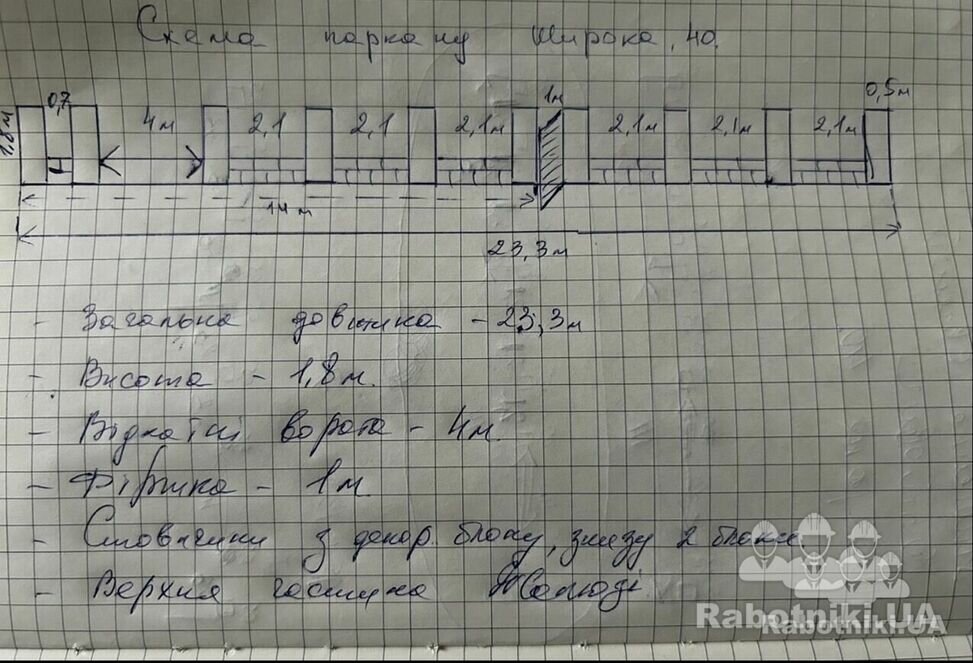 Схема паркану Широка, 40.
0,7 1м 0,5м
1,8м 4м 2,1 2,1 2,1м 2,1м 2,1м 2,1м
14 м
23,3м
- Загальна довжина - 23,3м
- Висота - 1,8м.
- Відкатні ворота - 4м.
- Фіртка - 1м.
- Стовпчики з декор. блоку, знизу 2 блоки
- Верхня частина Жалюзі.
Rabotniki.UA
Rabotniki.UA